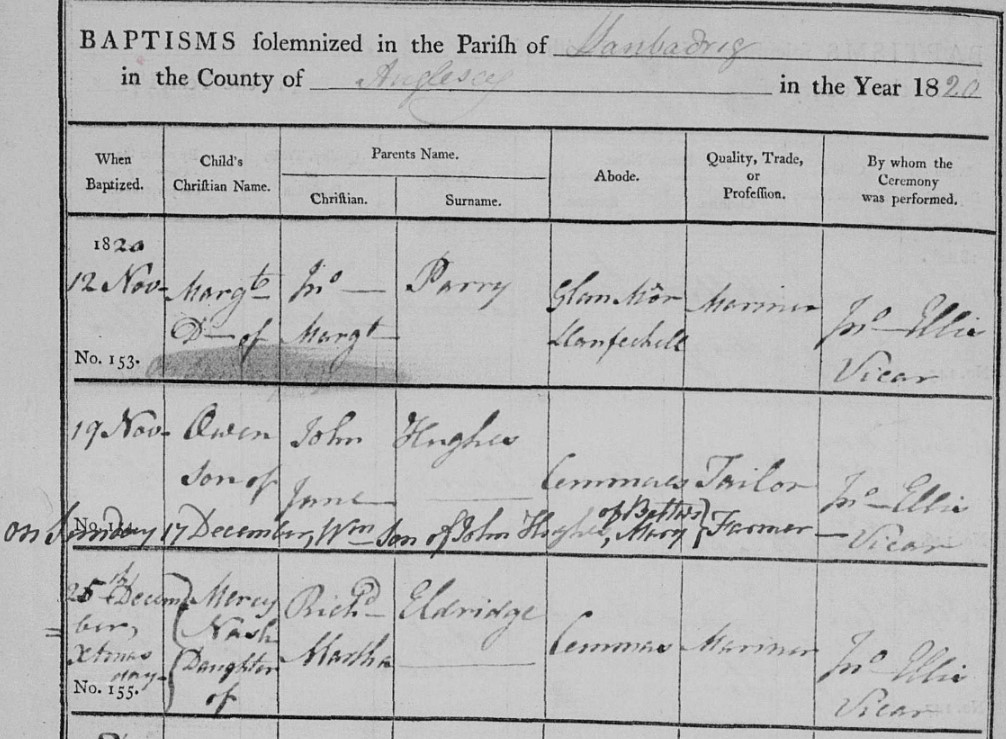 BAPTISMS ſolemnized in the Pariſh of Llanbadrig
in the County of Anglesey in the Year 1820
When Baptized. Child's Chriſtian Name. Parents Name. Abode. Quality, Trade, or Profeſſion. By whom the Ceremony was performed.
Chriſtian. Surname.
1820
12 Nov. Margt Jno Parry Glan Môr Mariner Jno Ellis
Dr of Margt Llanfechell Vicar
No. 153.
19 Nov. Owen John Hughes Cemmaes Tailor Jno Ellis
Son of Jane Vicar
on Sunday 17 December, Wm Son of John Hughes, Mary of Bettws } Farmer
25th Decem Mercy Richd Eldridge Cemmaes Mariner Jno Ellis
ber, Nash Martha Vicar
Xtmas Daughter
day of
No. 155.